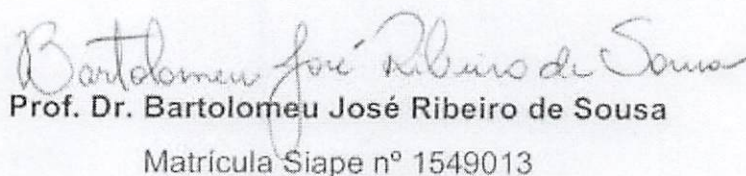 Bartolomeu José Ribeiro de Sousa
Prof. Dr. Bartolomeu José Ribeiro de Sousa
Matrícula Siape nº 1549013